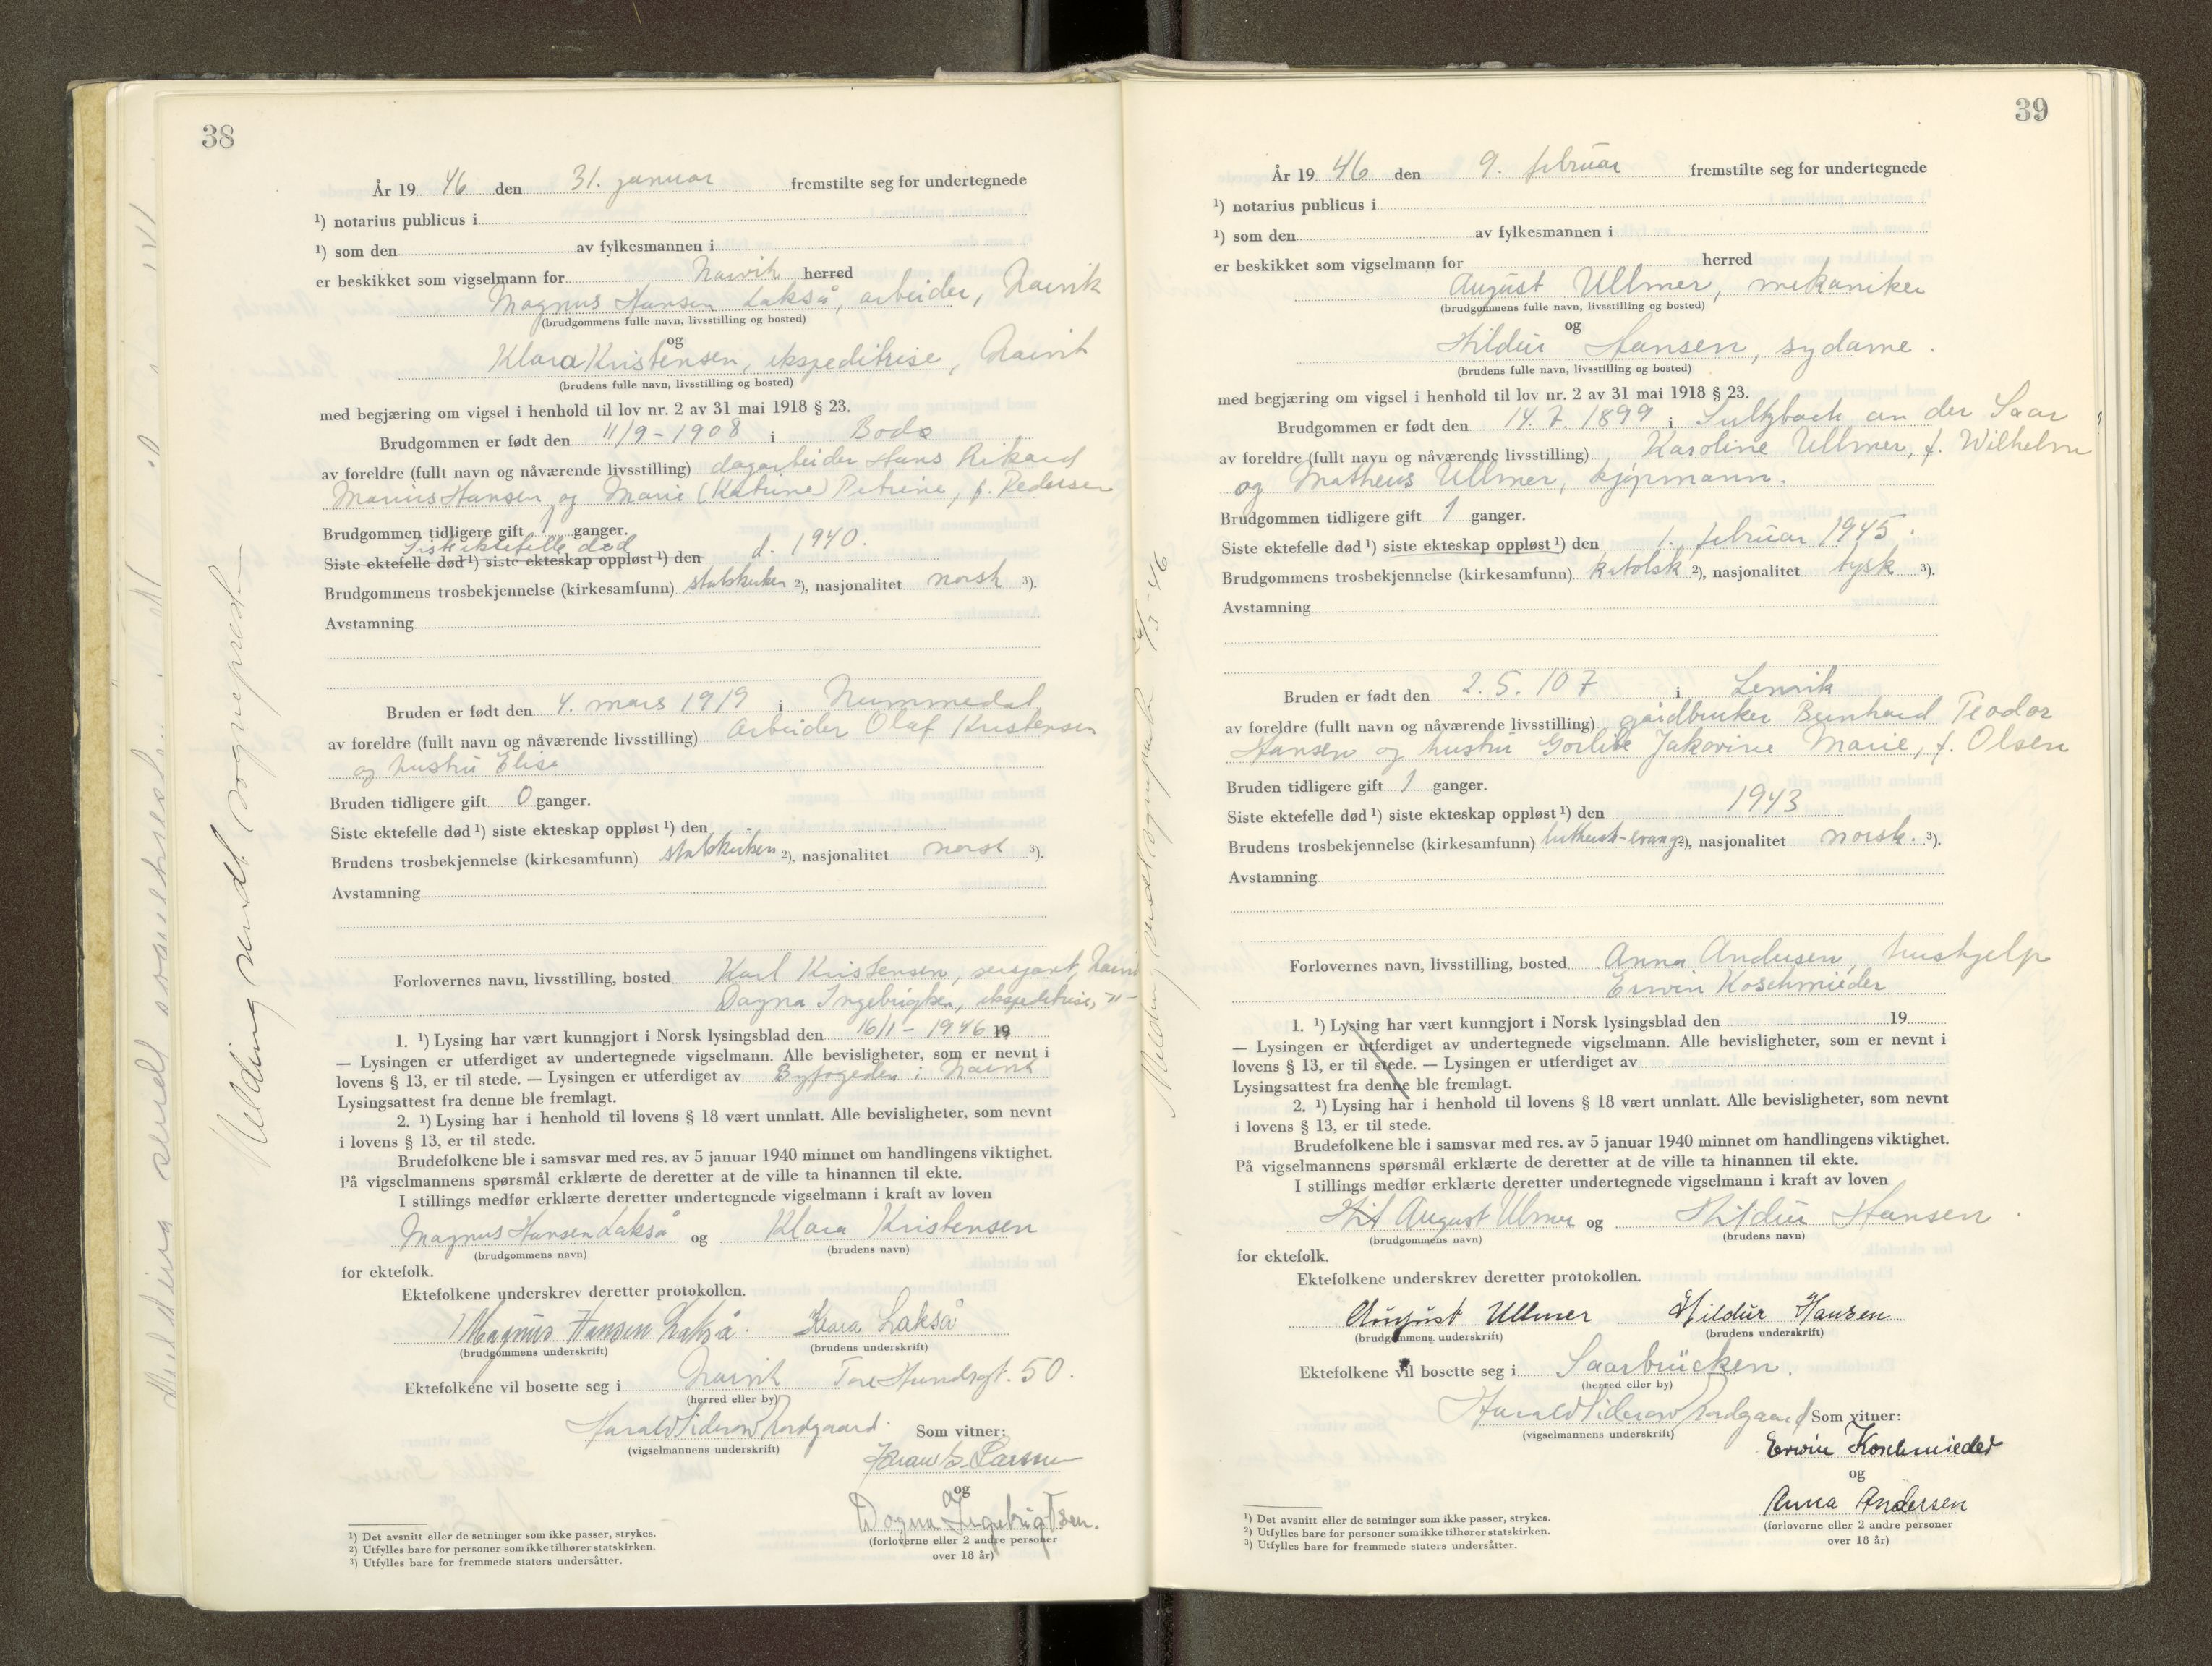 38
År 19 46 den 31. januar fremstilte seg for undertegnede
¹) notarius publicus i
¹) som den av fylkesmannen i
er beskikket som vigselmann for Narvik herred
Magnus Hansen Lakså, arbeider, Narvik
(brudgommens fulle navn, livsstilling og bosted)
og
Klara Kristensen, ekspeditrise, Narvik
(brudens fulle navn, livsstilling og bosted)
med begjæring om vigsel i henhold til lov nr. 2 av 31 mai 1918 § 23.
Brudgommen er født den 11/9-1908 i Bodø
av foreldre (fullt navn og nåværende livsstilling) dagarbeider Hans Rikard
Marius Hansen og Marie (Katrine) Petrine, f. Pedersen
Brudgommen tidligere gift 1 ganger.
Siste ektefelle død
Siste ektefelle død ¹) siste ekteskap oppløst ¹) den d. 1940.
Brudgommens trosbekjennelse (kirkesamfunn) statskirken ²), nasjonalitet norsk ³).
Avstamning
Bruden er født den 4. mars 1919 i Nummedal
av foreldre (fullt navn og nåværende livsstilling) Arbeider Olaf Kristensen
og hustru Elise
Bruden tidligere gift 0 ganger.
Siste ektefelle død ¹) siste ekteskap oppløst ¹) den
Brudens trosbekjennelse (kirkesamfunn) statskirken ²), nasjonalitet norsk ³).
Avstamning
Forlovernes navn, livsstilling, bosted Karl Kristensen, sersjant, Narvik
Dagna Ingebrigtsen, ekspeditrise, -"-
1. ¹) Lysing har vært kunngjort i Norsk lysingsblad den 16/1-1946 19
— Lysingen er utferdiget av undertegnede vigselmann. Alle bevisligheter, som er nevnt i
lovens § 13, er til stede. — Lysingen er utferdiget av Byfogeden i Narvik
Lysingsattest fra denne ble fremlagt.
2. ¹) Lysing har i henhold til lovens § 18 vært unnlatt. Alle bevisligheter, som nevnt
i lovens § 13, er til stede.
Brudefolkene ble i samsvar med res. av 5 januar 1940 minnet om handlingens viktighet.
På vigselmannens spørsmål erklærte de deretter at de ville ta hinannen til ekte.
I stillings medfør erklærte deretter undertegnede vigselmann i kraft av loven
Magnus Hansen Lakså og Klara Kristensen
(brudgommens navn) (brudens navn)
for ektefolk.
Ektefolkene underskrev deretter protokollen.
Magnus Hansen Lakså. Klara Lakså
(brudgommens underskrift) (brudens underskrift)
Ektefolkene vil bosette seg i Narvik Tore Hundsgt. 50.
(herred eller by)
Harald Siderow Nordgaard.
(vigselmannens underskrift)
Som vitner:
Larssen
og
Dagna Ingebrigtsen.
(forloverne eller 2 andre personer
over 18 år)
¹) Det avsnitt eller de setninger som ikke passer, strykes.
²) Utfylles bare for personer som ikke tilhører statskirken.
³) Utfylles bare for fremmede staters undersåtter.
Melding sendt sognepresten
39
År 19 46 den 9. februar fremstilte seg for undertegnede
¹) notarius publicus i
¹) som den av fylkesmannen i
er beskikket som vigselmann for herred
August Ullmer, mekaniker
(brudgommens fulle navn, livsstilling og bosted)
og
Hildur Hansen, sydame.
(brudens fulle navn, livsstilling og bosted)
med begjæring om vigsel i henhold til lov nr. 2 av 31 mai 1918 § 23.
Brudgommen er født den 14.7.1899 i Sultzbach an der Saar
av foreldre (fullt navn og nåværende livsstilling) Karoline Ullmer, f. Wilhelm
og Matheus Ullmer, kjøpmann.
Brudgommen tidligere gift 1 ganger.
Siste ektefelle død ¹) siste ekteskap oppløst ¹) den 1. februar 1945.
Brudgommens trosbekjennelse (kirkesamfunn) katolsk ²), nasjonalitet tysk ³).
Avstamning
Bruden er født den 2.5.107 i Lenvik
av foreldre (fullt navn og nåværende livsstilling) gårdbruker Bernhard Teodor
Hansen og hustru Jakovine Marie, f. Olsen
Bruden tidligere gift 1 ganger.
Siste ektefelle død ¹) siste ekteskap oppløst ¹) den 1943
Brudens trosbekjennelse (kirkesamfunn) luthersk-evang. ²), nasjonalitet norsk. ³).
Avstamning
Forlovernes navn, livsstilling, bosted Anna Andersen, hushjelp
Erwin Koschmieder
1. ¹) Lysing har vært kunngjort i Norsk lysingsblad den 19
— Lysingen er utferdiget av undertegnede vigselmann. Alle bevisligheter, som er nevnt i
lovens § 13, er til stede. — Lysingen er utferdiget av
Lysingsattest fra denne ble fremlagt.
2. ¹) Lysing har i henhold til lovens § 18 vært unnlatt. Alle bevisligheter, som nevnt
i lovens § 13, er til stede.
Brudefolkene ble i samsvar med res. av 5 januar 1940 minnet om handlingens viktighet.
På vigselmannens spørsmål erklærte de deretter at de ville ta hinannen til ekte.
I stillings medfør erklærte deretter undertegnede vigselmann i kraft av loven
August Ulmer og Hildur Hansen.
(brudgommens navn) (brudens navn)
for ektefolk.
Ektefolkene underskrev deretter protokollen.
August Ullmer Hildur Hansen
(brudgommens underskrift) (brudens underskrift)
Ektefolkene vil bosette seg i Saarbrücken.
(herred eller by)
Harald Siderow Nordgaard
(vigselmannens underskrift)
Som vitner:
Erwin Koschmieder
og
Anna Andersen
(forloverne eller 2 andre personer
over 18 år)
¹) Det avsnitt eller de setninger som ikke passer, strykes.
²) Utfylles bare for personer som ikke tilhører statskirken.
³) Utfylles bare for fremmede staters undersåtter.
Melding sendt sognepresten 6/3-46